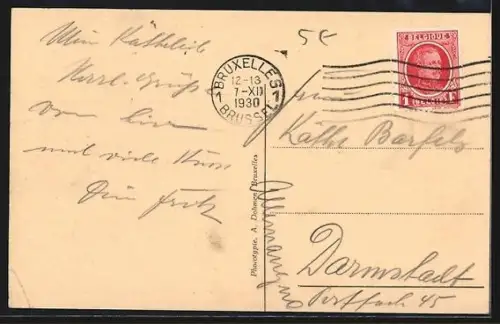 Mein Käthlein
Herzl. Grüße
von hier
und viele Küsse
Dein Fritz
5 €
BRUXELLES 1
12-13
7-XII
1930
BRUSSEL
BELGIQUE
1F
BELGIË
1F
Käthe Barfels
Darmstadt
Postfach 45
Phototypie. A. Dohmen, Bruxelles